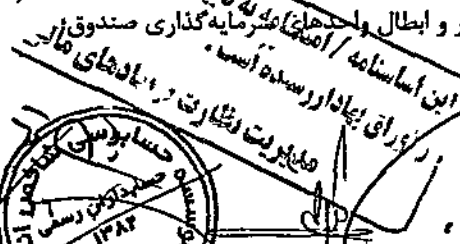 و ابطال واحدهای سرمایه‌گذاری صندوق؛
این اساسنامه / امیدنامه به
اوراق بهادار رسیده است.
مدیریت نظارت بر نهادهای مالی
موسسه حسابرسی شاخص
حسابداران رسمی
۱۳۸۳